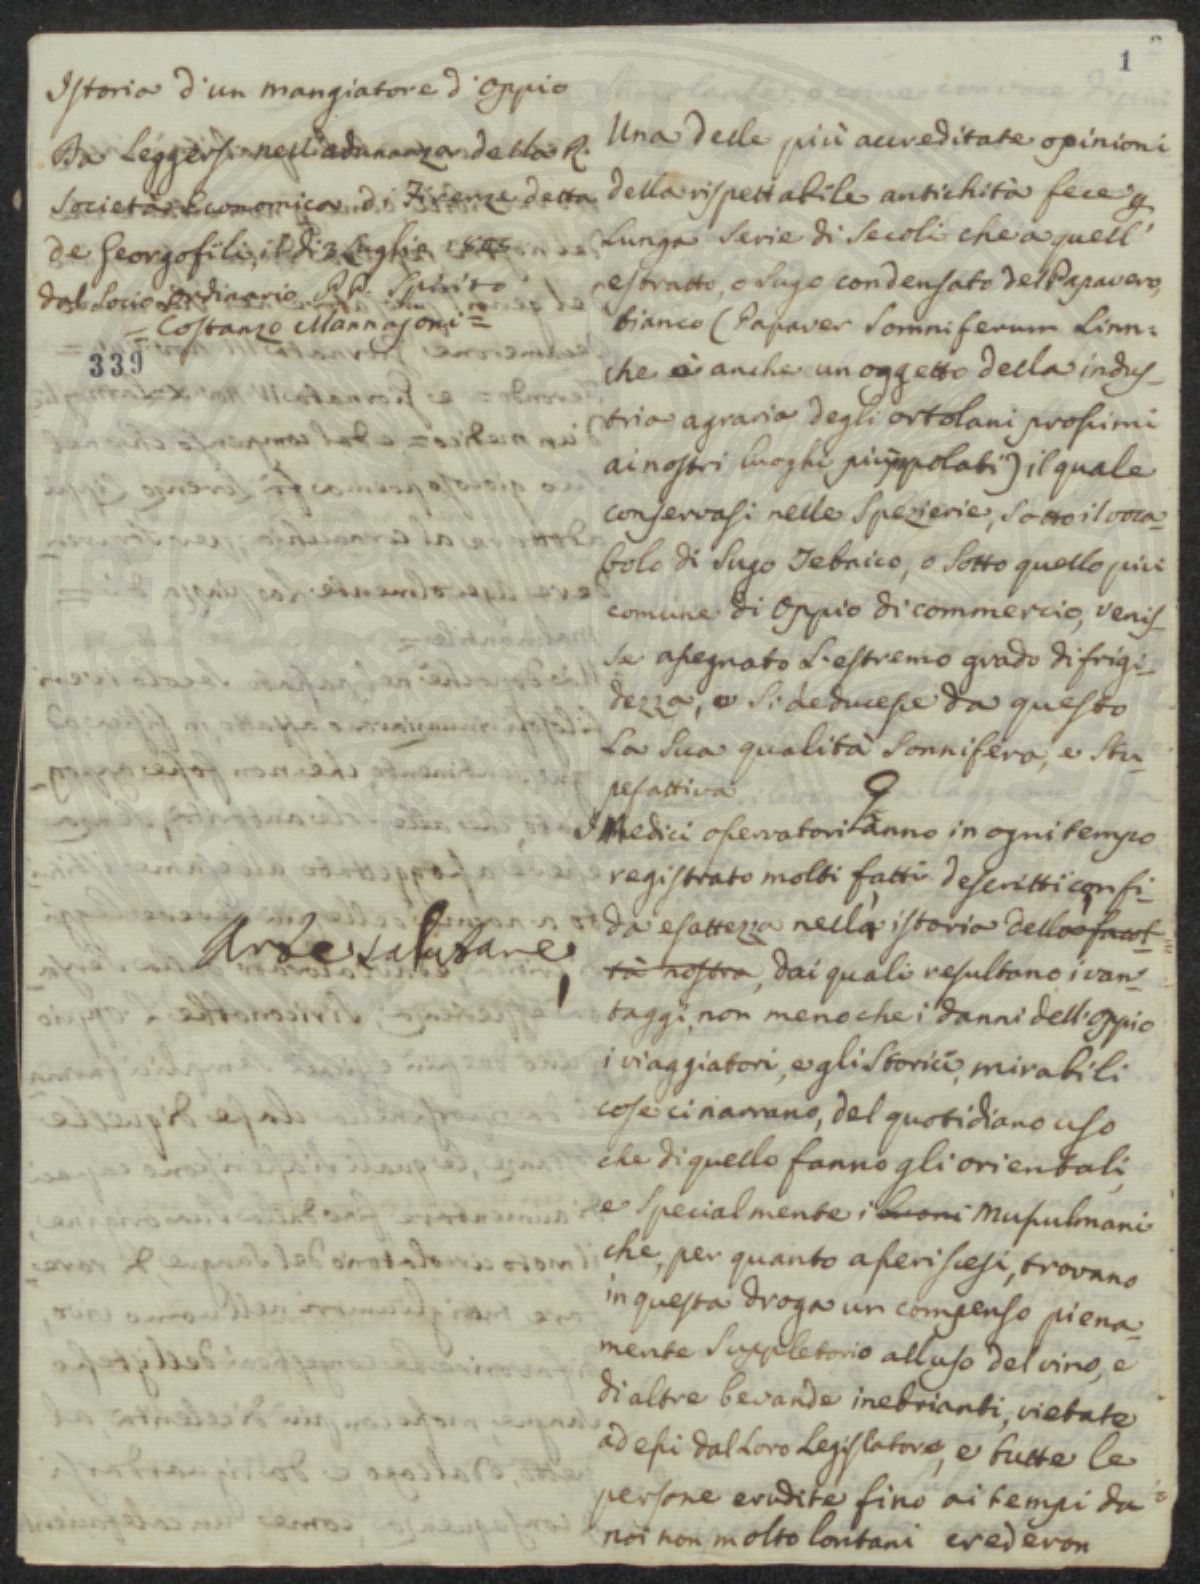 1
Istoria d'un mangiatore d'Oppio
Da Leggersi nell'adunanza della R.
Società Economica di Firenze detta
de Georgofili, il dì 2 Luglio
dal Socio Ordinario Spirito
= Costanzo Mannajoni =
339
Arte salutare,
Una delle più accreditate opinioni
della rispettabile antichità fece p
Lunga serie di Secoli che a quell'
estratto, o Sugo condensato del Papavero,
bianco (Papaver Somniferum Linn:
che è anche un oggetto della indus-
tria agraria degli ortolani prossimi
ai nostri luoghi più popolati) il quale
conservasi nelle Spezierie, sotto il voca-
bolo di Sugo Tebaico, o Sotto quello più
comune di Oppio di commercio, venis-
se assegnato L'estremo grado di frigi-
dezza, e si deducesse da questo
La Sua qualità Sonnifera, e Stu-
pefattiva
I Medici osservatori ànno in ogni tempo
registrato molti fatti descritti con fi-
da esattezza nella istoria della facol-
tà nostra, dai quali resultano i van-
taggi, non meno che i danni dell'Oppio
i viaggiatori, e gli Storici, mirabili
cose ci narrano, del quotidiano uso
che di quello fanno gli orientali,
e Specialmente i buoni Musulmani
che, per quanto asseriscesi, trovano
in questa droga un compenso piena-
mente Suppletorio all uso del vino, e
di altre bevande inebrianti, vietate
ad essi dal Loro Legislatore, e tutte le
persone erudite fino ai tempi da
noi non molto lontani crederon